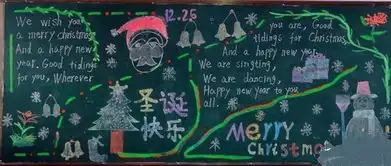 We wish you
a merry christmas
And a happy new
year. Good tidings
for you, Wherever
12.25
you are, Good
tidings for Christmas
And a happy new year.
We are singting,
We are dancing,
Happy new year to you
all.
圣诞
快乐
Merry
Christmas